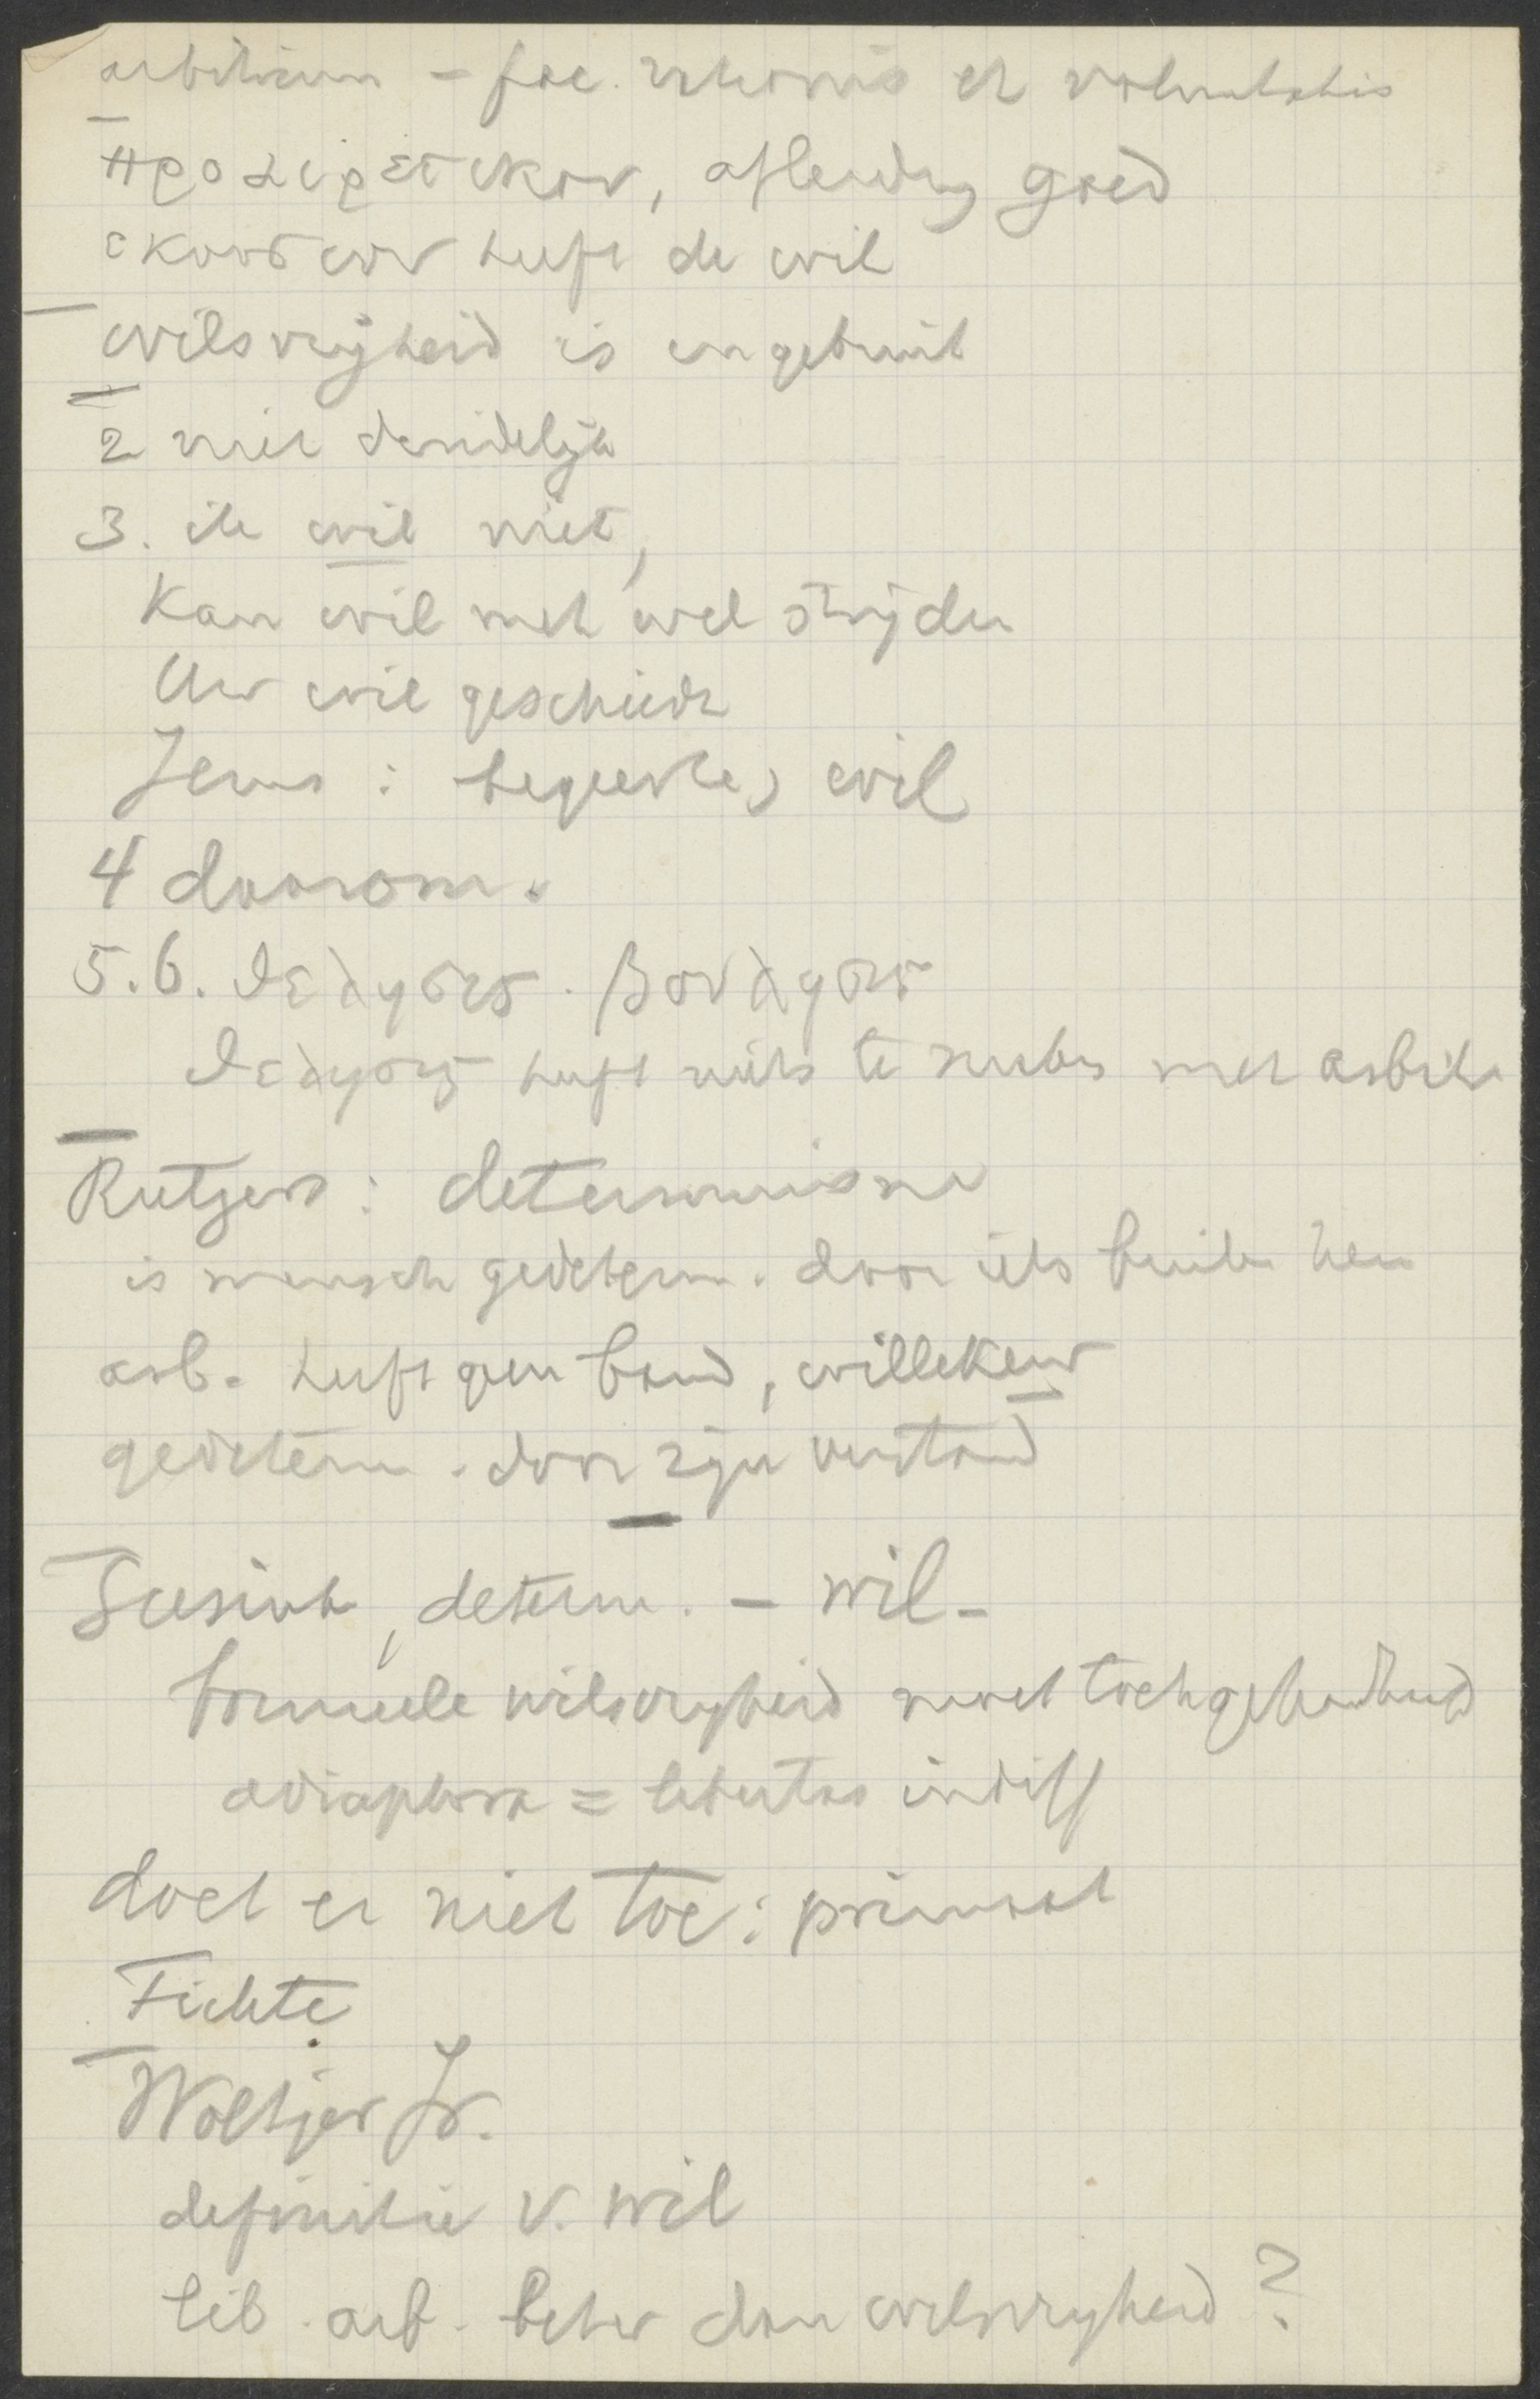 arbitrium - fac. rationis et voluntatis
προαιρετικον, afleiding goed
εκουσιον heeft de wil
wilsvrijheid is ingebruik
2 niet duidelijk
3. ik wil niet,
Kan wil met wel strijden
Uw wil geschiede
Jezus : begeerte, wil
4 daarom.
5.6. θέλησις . βούλησις
θέλησις heeft niets te maken met arbitr
Rutgers : determinisme
is mensch gedeterm. door iets buiten hem
arb. heeft geen band, willekeur
gedeterm. door zijn verstand
determ. - wil -
formeele wilsvrijheid moet toch gehandhaafd
adiaphora = libertas indiff
doet er niet toe : primaat
Fichte
Woltjer Jr.
definitie v. wil
lib. arb. beter dan wilsvrijheid ?